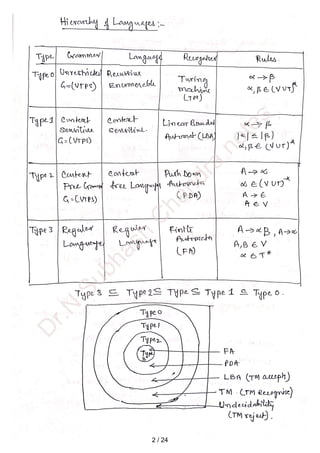 Hierarchy of Languages:-
Type Grammer Language Recogniser Rules
Type 0 Unrestricted G=(VTPS) Recursive Enumerable Turing machine (TM) α→β α,β ∈ (VUT)*
Type 1 Context Sensitive G=(VTPS) Context sensitive Linear Bounded Automat (LBA) α→β |α| ≤ |β| α,β ∈ (VUT)*
Type 2 Context Free G=(VTPS) Context free Language Push Down Automata (PDA) A→α α ∈ (VUT)* A→ε A ∈ V
Type 3 Regular Language Regular Language Finite Automata (FA) A→αB, A→α A,B ∈ V α ∈ T*
Type 3 ⊆ Type 2 ⊆ Type ⊆ Type 1 ⊆ Type 0.
Type 0
Type 1
Type 2
FA
PDA
LBA (TM accepts)
TM (TM Recognise)
Undecidability
(TM reject).
2 / 24